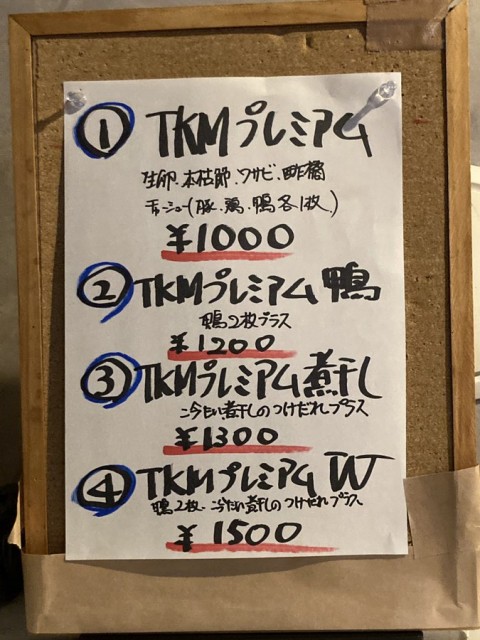 ① TKMプレミアム
生卵、本枯節、ワサビ、酢橘
チャーシュー(豚、鶏、鴨各1枚)
¥1000
② TKMプレミアム鴨
鴨2枚プラス
¥1200
③ TKMプレミアム煮干し
煮干しのつけだれプラス
¥1300
④ TKMプレミアムW
鴨2枚、煮干しのつけだれプラス
¥1500